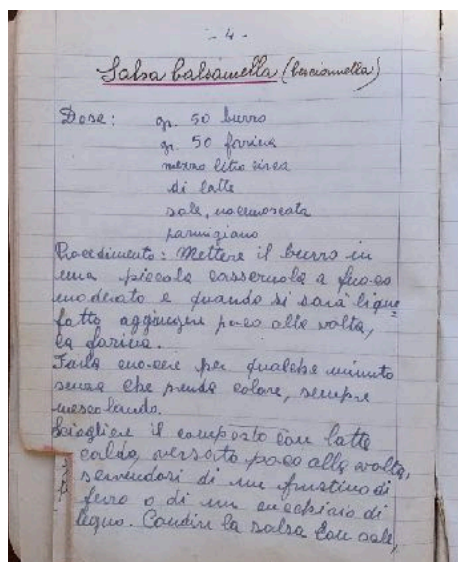 - 4 -
Salsa balsamella (besciamella)
Dose: gr. 50 burro
gr. 50 farina
mezzo litro circa
di latte
sale, nocemoscata
parmigiano
Procedimento: Mettere il burro in
una piccola casseruola a fuoco
moderato e quando si sarà lique
fatto aggiungere poco alla volta,
la farina.
Farla cuocere per qualche minuto
senza che prenda colore, sempre
mescolando.
Sciogliere il composto con latte
caldo, versato poco alla volta,
servendosi di un frustino di
ferro o di un cucchiaio di
legno. Condire la salsa con sale,